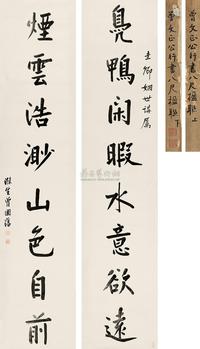 鳧鴨閑暇水意欲遠
圭卿姻世講屬
煙雲浩渺山色自前
滌生曾國藩
曾文正公行書八尺楹聯上
曾文正公行書八尺楹聯下